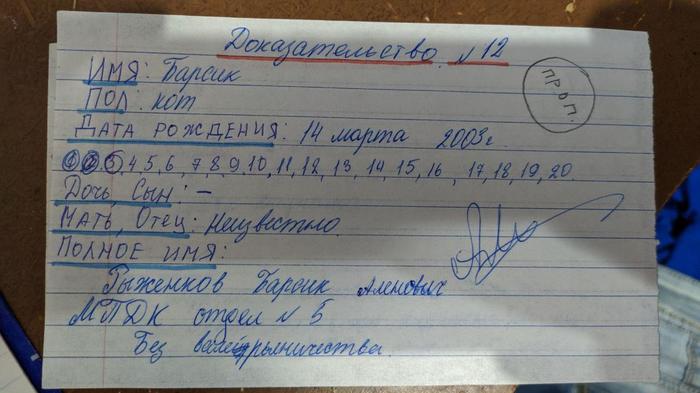 Доказательство №12
ПРОП.
Имя: Барсик
Пол: кот
Дата рождения: 14 марта 2003 г.
1, 2, 3, 4, 5, 6, 7, 8, 9, 10, 11, 12, 13, 14, 15, 16, 17, 18, 19, 20.
Дочь, Сын: –
Мать, Отец: Неизвестно.
Полное имя:
Рыженков Барсик Аленович
МПДК отдел №5
Без